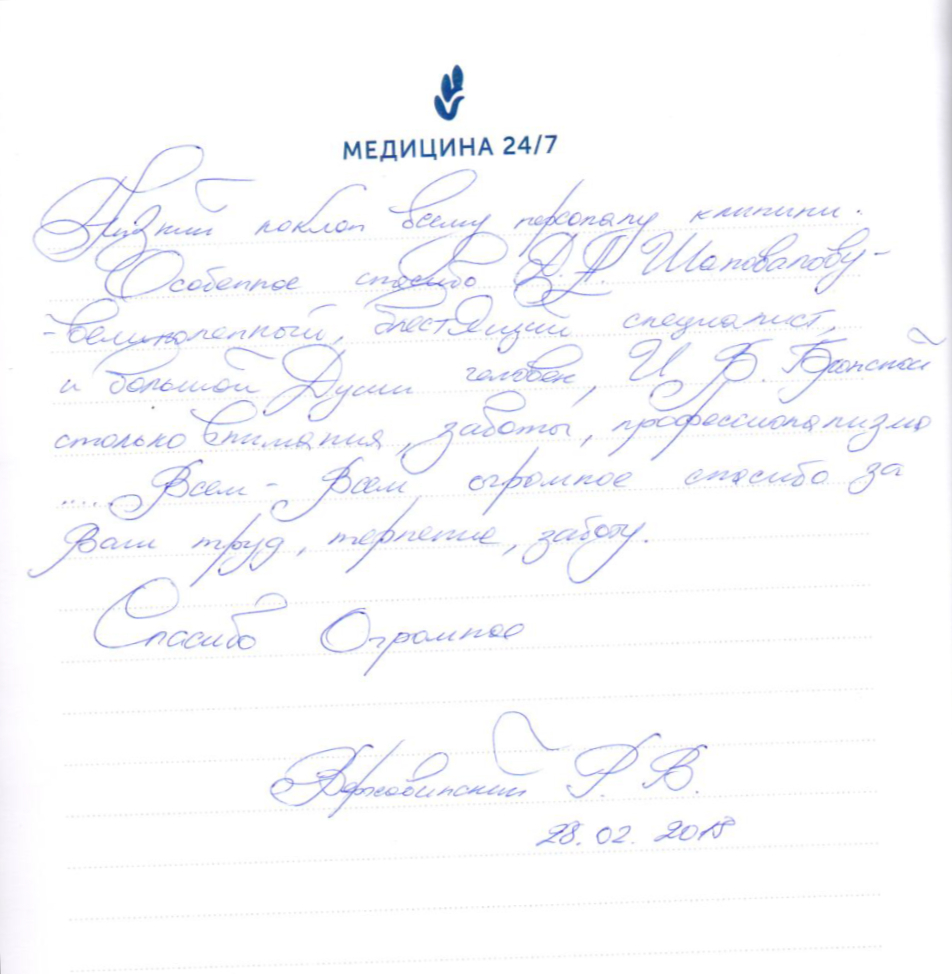 МЕДИЦИНА 24/7
Низкий поклон всему персоналу клиники.
Особенное спасибо Д.А. Шаповалову -
- великолепный, блестящий специалист,
и большой Души человек, И Б. Бронской
столько внимания, заботы, профессионализма
..... Всем - Всем, огромное спасибо за
Ваш труд, терпение, заботу.
Спасибо Огромное
Г. В.
28.02.2018